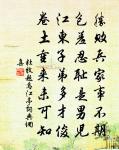 勝敗兵家事不期
包羞忍恥是男兒
江東子弟多才俊
卷土重來未可知
杜牧題烏江亭詞典網